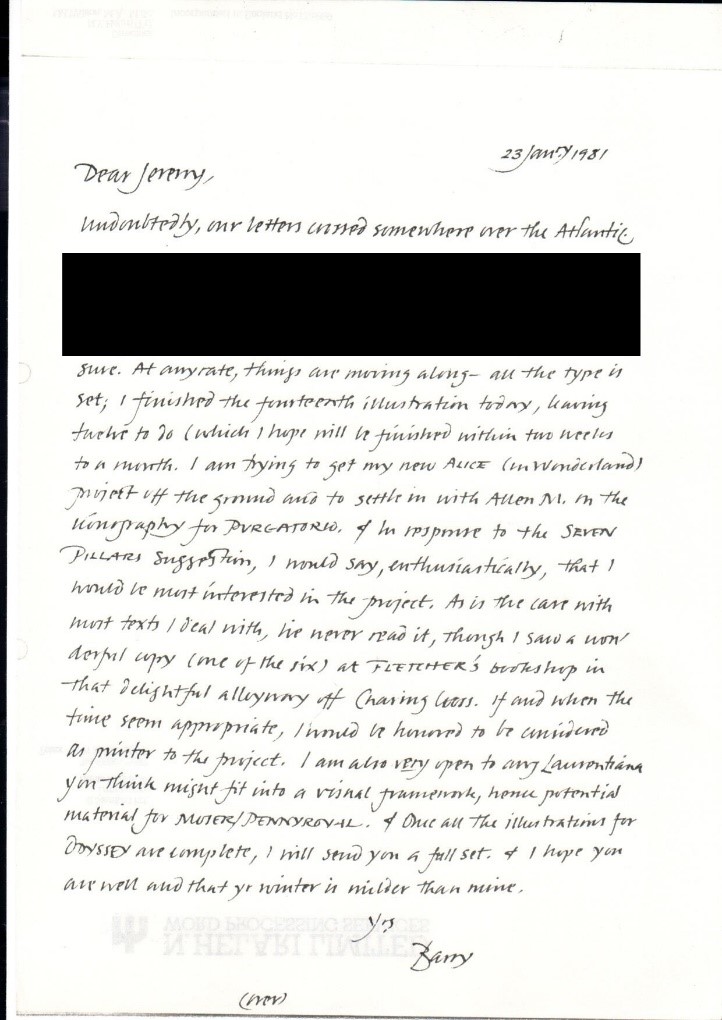 23 Jan.y 1981
Dear Jeremy,
Undoubtedly, our letters crossed somewhere over the Atlantic.
sure. At anyrate, things are moving along – all the type is
set; I finished the fourteenth illustration today, leaving
twelve to do (which I hope will be finished within two weeks
to a month. I am trying to get my new ALICE (in Wonderland)
project off the ground and to settle in with Allen M. on the
iconography for PURGATORIO. & In response to the SEVEN
PILLARS suggestion, I would say, enthusiastically, that I
would be most interested in the project. As is the case with
most texts I deal with, I've never read it, though I saw a won-
derful copy (one of the six) at FLETCHER'S bookshop in
that delightful alleyway off Charing Cross. If and when the
time seem appropriate, I would be honored to be considered
as printer to the project. I am also very open to any Laurentiana
you think might fit into a visual framework, hence potential
material for MOSER/PENNYROYAL. & Once all the illustrations for
ODYSSEY are complete, I will send you a full set. & I hope you
are well and that yr winter is milder than mine.
Yrs
Barry
N. HELARI LIMITED
WORD PROCESSING SERVICES
(over)